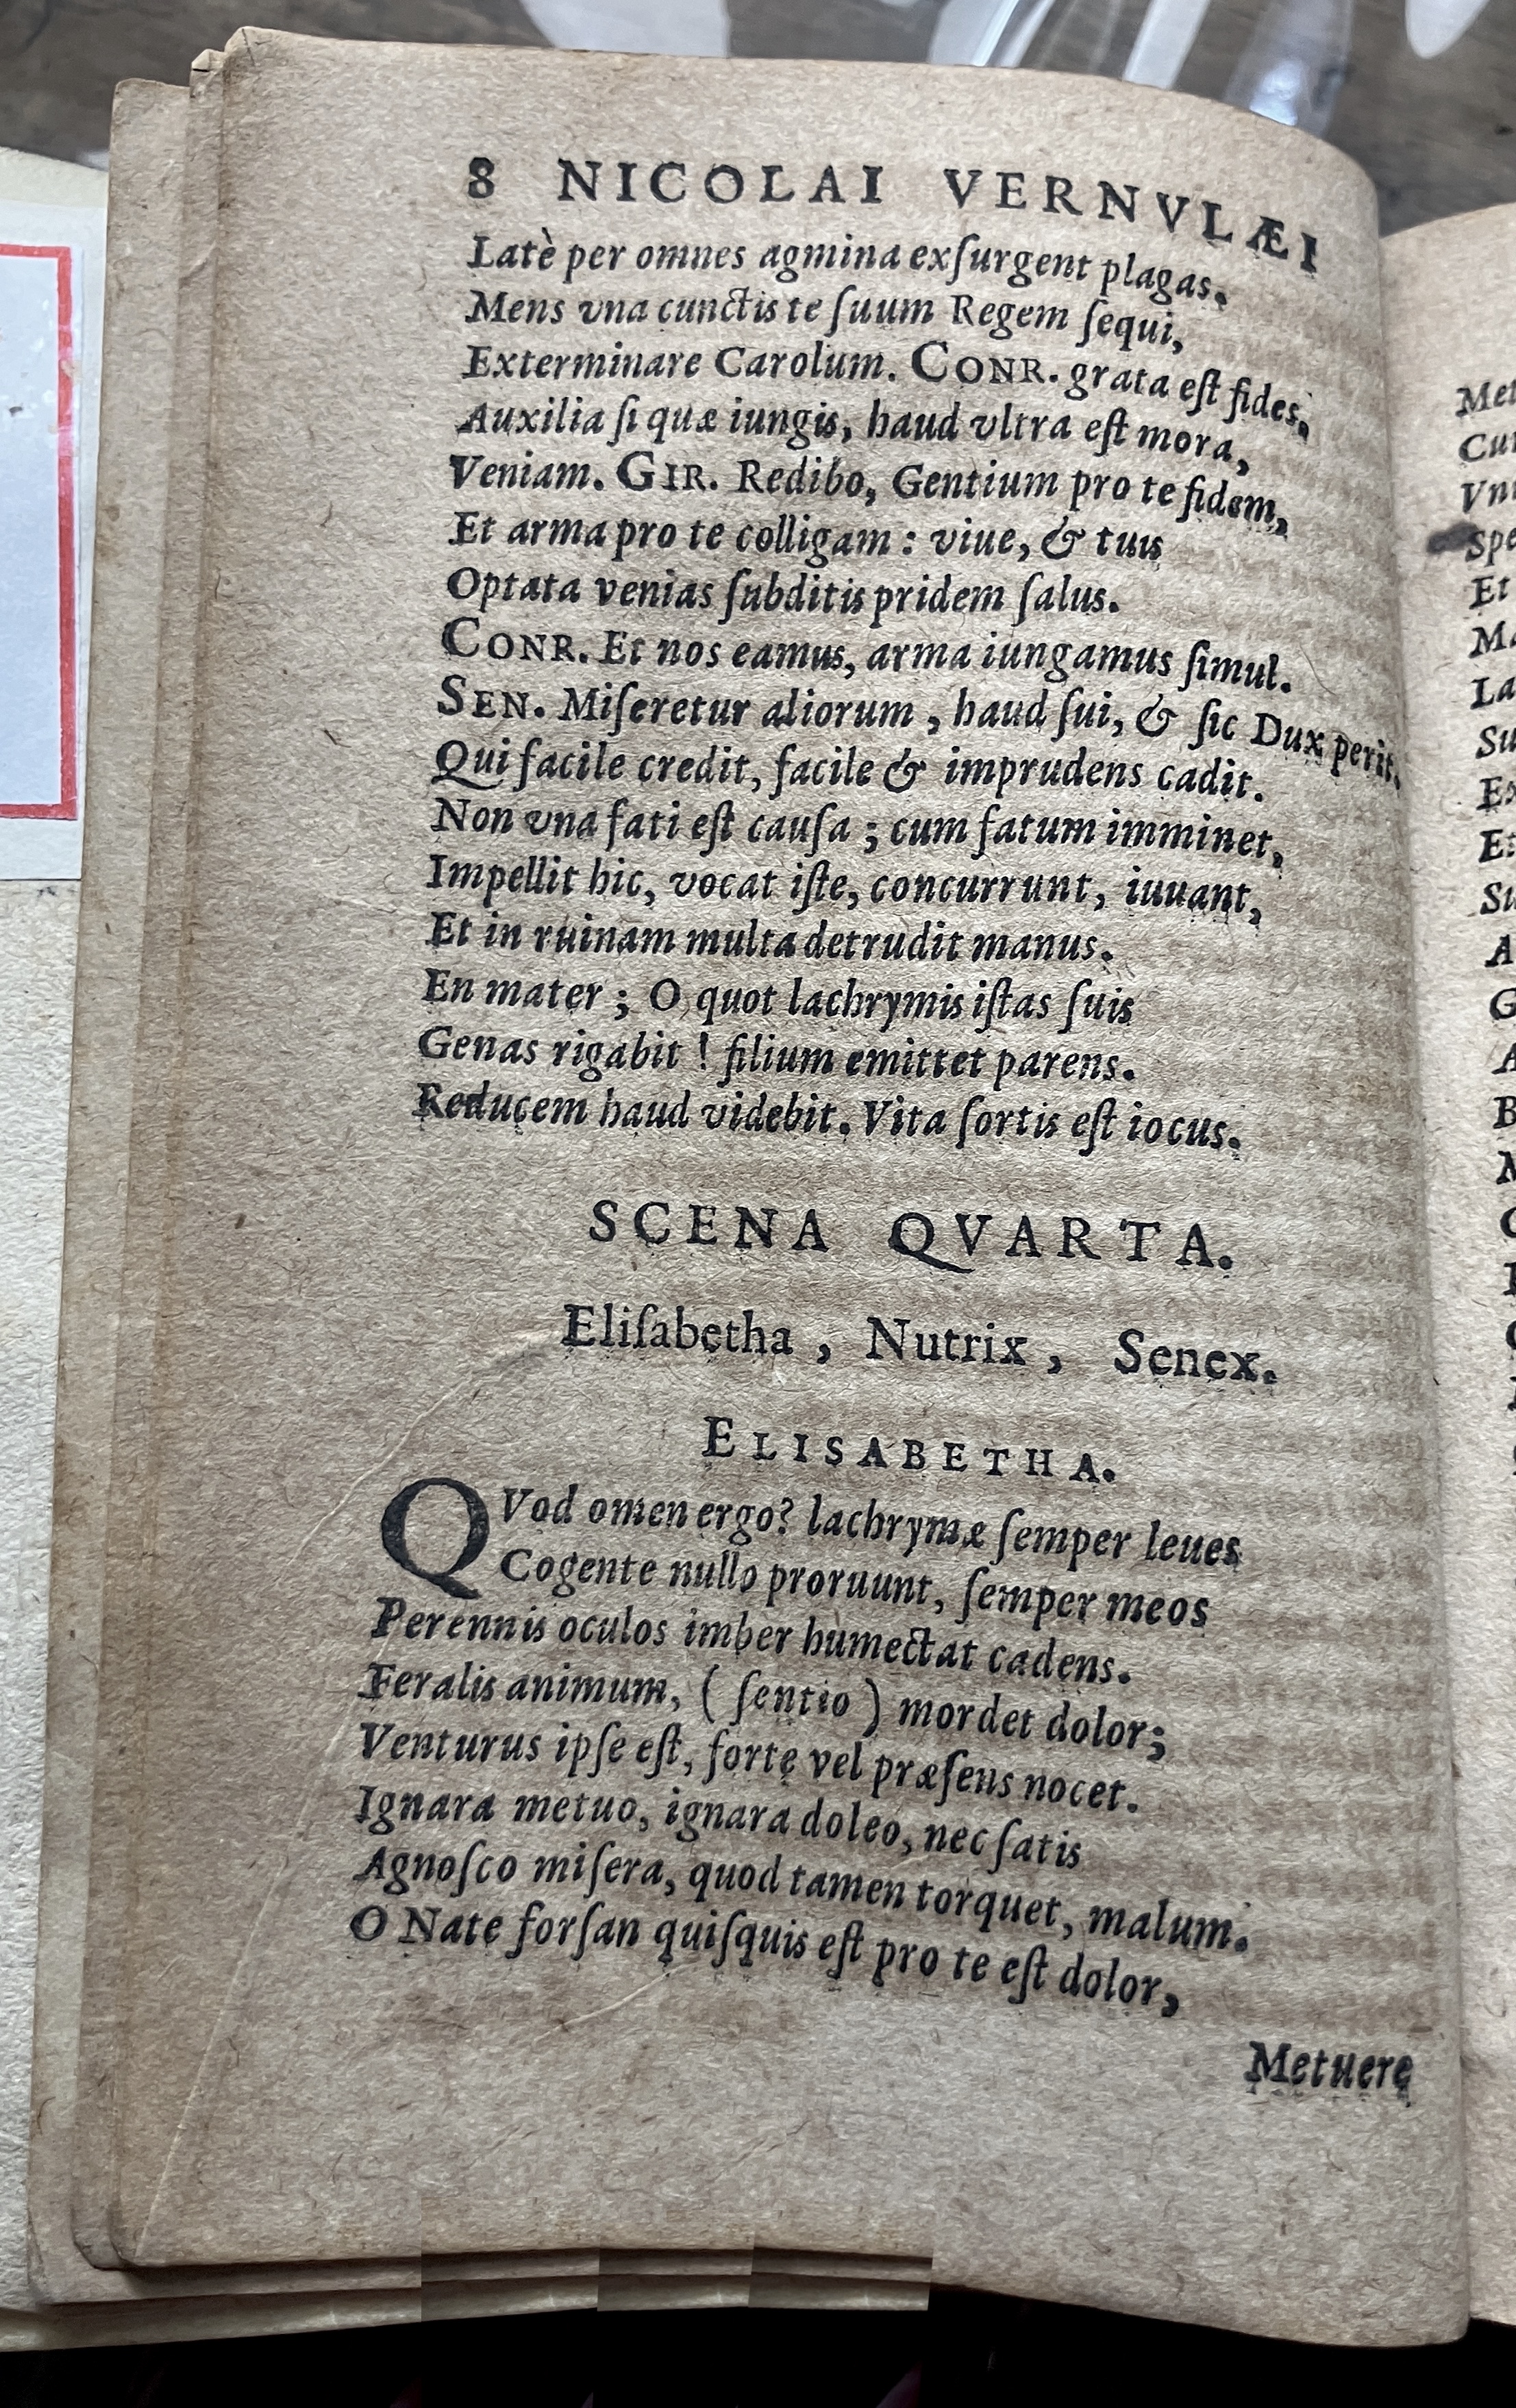 8 NICOLAI VERNVLÆI
Latè per omnes agmina exſurgent plagas.
Mens vna cunctis te ſuum Regem ſequi,
Exterminare Carolum. CONR. grata eſt fides,
Auxilia ſi quæ iungis, haud vltra eſt mora,
Veniam. GIR. Redibo, Gentium pro te fidem,
Et arma pro te colligam : viue, & tuis
Optata venias ſubditis pridem ſalus.
CONR. Et nos eamus, arma iungamus ſimul.
SEN. Miſeretur aliorum , haud ſui, & ſic Dux perit.
Qui facile credit, facile & imprudens cadit.
Non vna fati eſt cauſa ; cum fatum imminet,
Impellit hic, vocat iſte, concurrunt, iuuant,
Et in ruinam multa detrudit manus.
En mater ; O quot lachrymis iſtas ſuis
Genas rigabit ! filium emittet parens.
Reducem haud videbit. Vita ſortis eſt iocus.
SCENA QVARTA.
Eliſabetha , Nutrix , Senex.
ELISABETHA.
QVod omen ergo? lachrymæ ſemper leues
Cogente nullo proruunt, ſemper meos
Perennis oculos imber humectat cadens.
Feralis animum, ( ſentio ) mordet dolor;
Venturus ipſe eſt, forte vel præſens nocet.
Ignara metuo, ignara doleo, nec ſatis
Agnoſco miſera, quod tamen torquet, malum.
O Nate forſan quiſquis eſt pro te eſt dolor,
Metuere